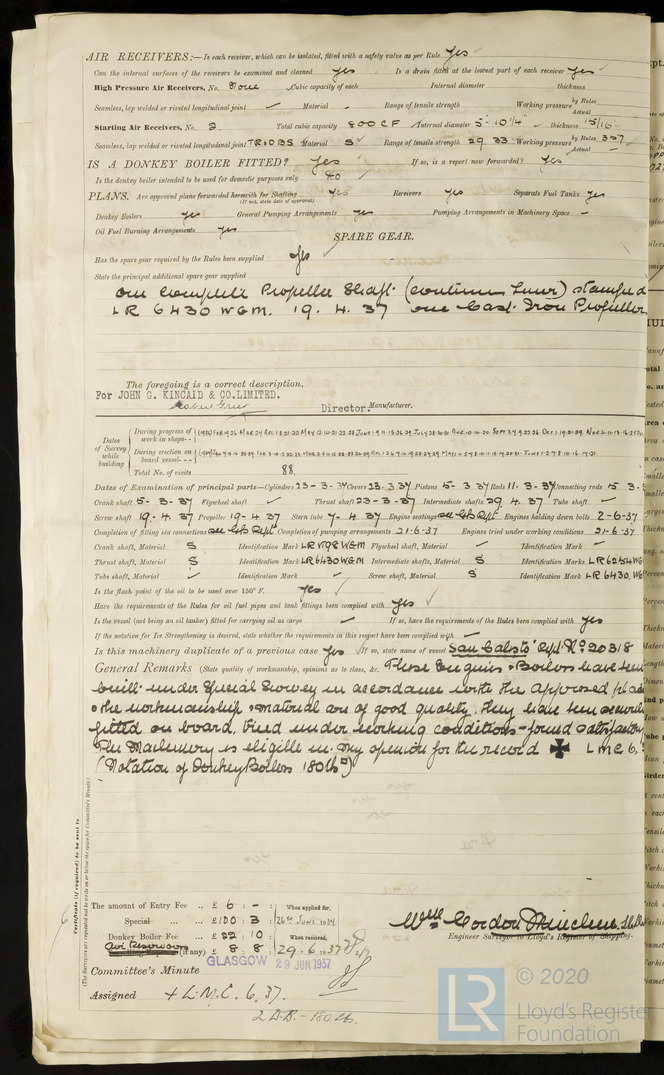 AIR RECEIVERS:—Is each receiver, which can be isolated, fitted with a safety valve as per Rule Yes
Can the internal surfaces of the receivers be examined and cleaned Yes Is a drain fitted at the lowest part of each receiver Yes
High Pressure Air Receivers, No. None Cubic capacity of each Internal diameter thickness
Seamless, lap welded or riveted longitudinal joint Material Range of tensile strength Working pressure by Rules Actual
Starting Air Receivers, No. 2 Total cubic capacity 800 CF Internal diameter 5'-10 1/4" thickness 15/16"
Seamless, lap welded or riveted longitudinal joint TRIDBS Material S Range of tensile strength 29.33 Working pressure by Rules 357 Actual
IS A DONKEY BOILER FITTED? Yes If so, is a report now forwarded? Yes
Is the donkey boiler intended to be used for domestic purposes only No
PLANS. Are approved plans forwarded herewith for Shafting Yes Receivers Yes Separate Fuel Tanks Yes
(If not, state date of approval)
Donkey Boilers Yes General Pumping Arrangements Yes Pumping Arrangements in Machinery Space -
Oil Fuel Burning Arrangements Yes
SPARE GEAR.
Has the spare gear required by the Rules been supplied Yes
State the principal additional spare gear supplied
One Complete Propeller Shaft (continuous Liner) stamped
LR 6430 WGM. 19. 4. 37 one Cast Iron Propeller
The foregoing is a correct description,
For JOHN G. KINCAID & CO. LIMITED.
Director. Manufacturer.
Dates of Survey while building
During progress of work in shops--
During erection on board vessel---
Total No. of visits 88.
Dates of Examination of principal parts—Cylinders 23-3-37 Covers 23.3.37 Pistons 5-3-37 Rods 11-3-37 Connecting rods 15 3
Crank shaft 5-3-37 Flywheel shaft Thrust shaft 23-3-37 Intermediate shafts 29 4. 37 Tube shaft
Screw shaft 19.-4. 37 Propeller 19-4 37 Stern tube 7-4 37 Engine seatings see Gls Rept. Engines holding down bolts 2-6-37
Completion of fitting sea connections see Gls Rept Completion of pumping arrangements 21-6-37 Engines tried under working conditions 21-6-37
Crank shaft, Material S Identification Mark Flywheel shaft, Material Identification Mark
Thrust shaft, Material S Identification Mark LR 6430 WGM Intermediate shafts, Material S Identification Marks LR 6254 WG
Tube shaft, Material Identification Mark Screw shaft, Material S Identification Mark LR 6430. WG
Is the flash point of the oil to be used over 150° F. Yes
Have the requirements of the Rules for oil fuel pipes and tank fittings been complied with Yes
Is the vessel (not being an oil tanker) fitted for carrying oil as cargo If so, have the requirements of the Rules been complied with Yes
If the notation for Ice Strengthening is desired, state whether the requirements in this respect have been complied with
Is this machinery duplicate of a previous case Yes If so, state name of vessel San Calisto Rept. No. 20318
General Remarks (State quality of workmanship, opinions as to class, &c. These Engines & Boilers have been
built under Special Survey in accordance with the Approved plans
& the workmanship & material are of good quality. They have been securely
fitted on board, tried under working conditions - found satisfactory
The Machinery is eligible in my opinion for the record ✠ LMC 6.
(Notation of Donkey Boilers 180 lbs)
Certificate (if required) to be sent to
(The Surveyors are requested not to write on or below the space for Committee's Minute.)
The amount of Entry Fee .. £ 6 : - When applied for,
Special ... ... £ 100 : 3 26th JUNE 1937
Donkey Boiler Fee ... £ 22 : 10 When received,
Air Reservoirs (if any) £ 8 : 8 29. 6. 1937
Wm Gordon
Engineer Surveyor to Lloyd's Register of Shipping.
GLASGOW 29 JUN 1937
Committee's Minute
Assigned + L.M.C. 6. 37.
2 D.B. - 180 lb.
LR © 2020
Lloyd's Register
Foundation